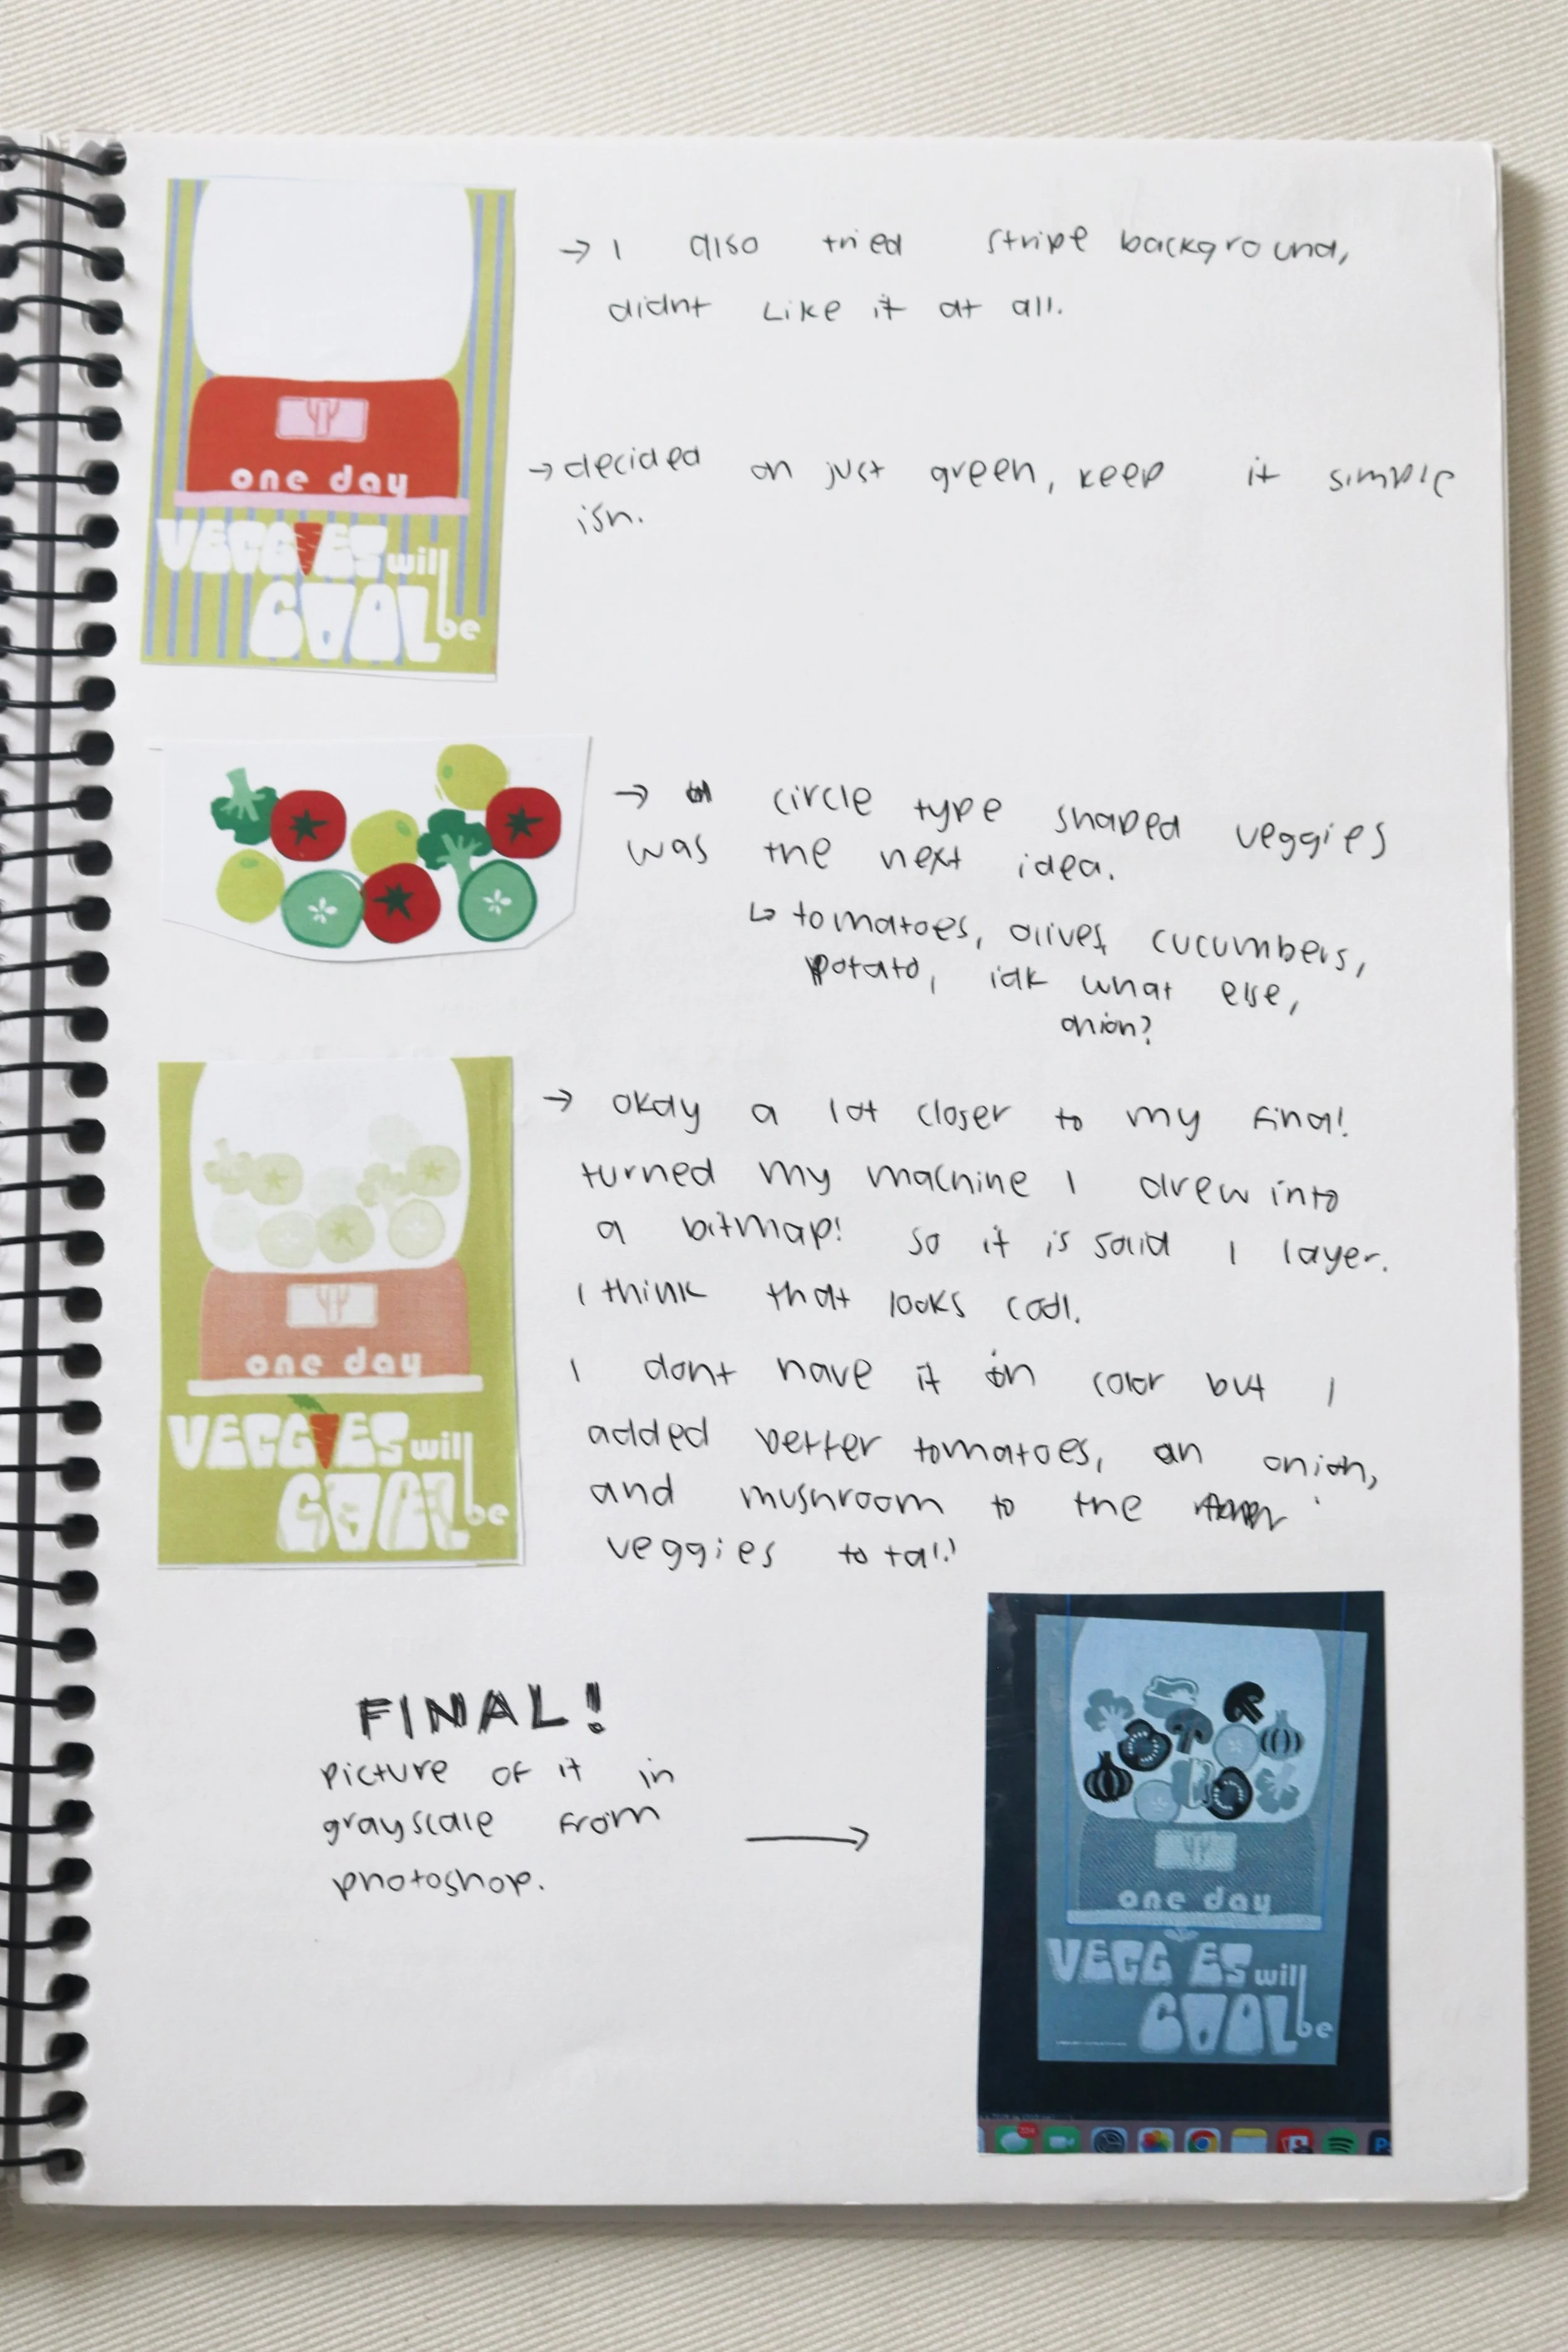 → I also tried stripe background,
didnt like it at all.
one day
VEGGIES will
COOL be
→ decided on just green, keep it simple
ish.
→ circle type shaped veggies
was the next idea.
↳ tomatoes, olives, cucumbers,
potato, idk what else,
onion?
→ okay a lot closer to my final!
turned my machine I drew into
a bitmap! so it is solid 1 layer.
I think that looks cool.
one day
VEGGIES will
COOL be
I dont have it in color but I
added better tomatoes, an onion,
and mushroom to the
veggies total!
FINAL!
picture of it in
grayscale from
photoshop.
→
one day
VEGG ES will
COOL be